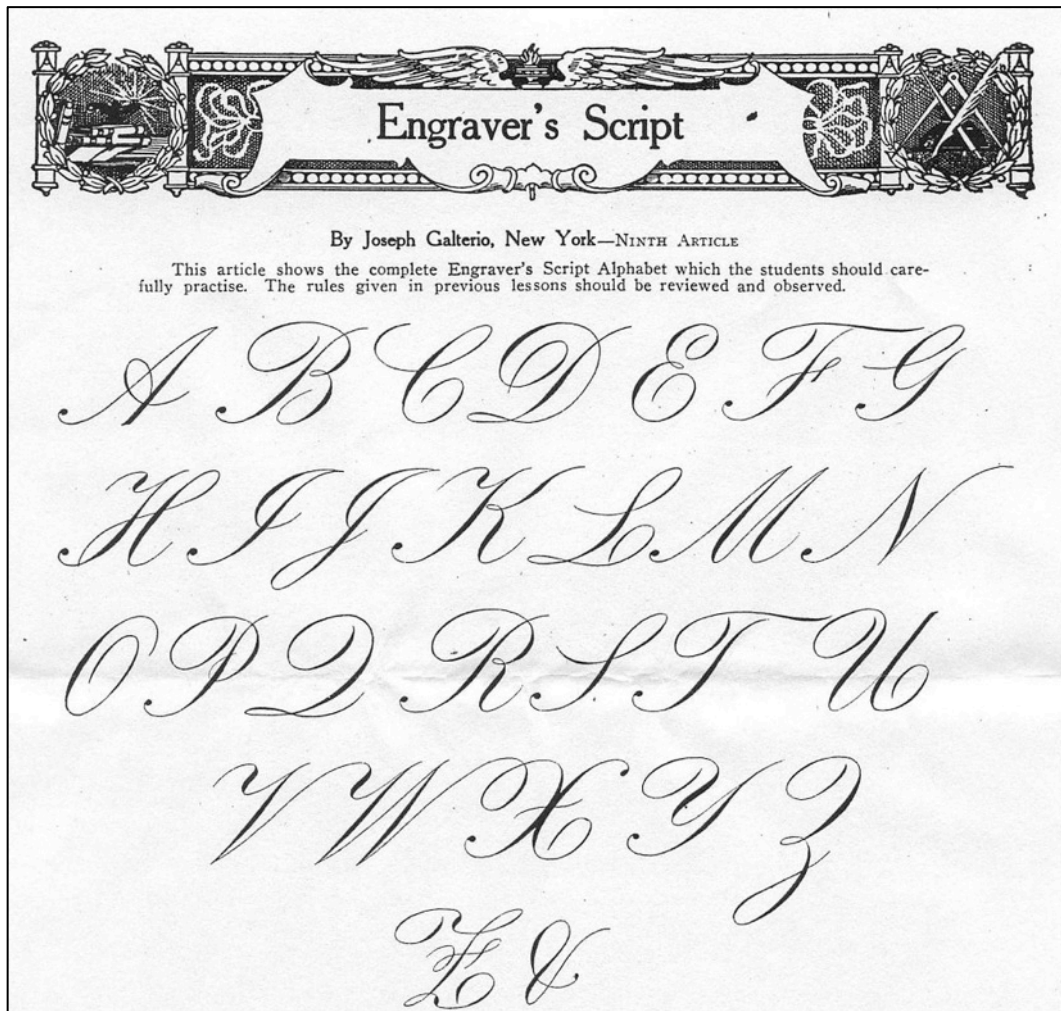 Engraver's Script
By Joseph Galterio, New York—NINTH ARTICLE
This article shows the complete Engraver's Script Alphabet which the students should care-
fully practise. The rules given in previous lessons should be reviewed and observed.
A B C D E F G
H I J K L M N
O P Q R S T U
V W X Y Z
Z &